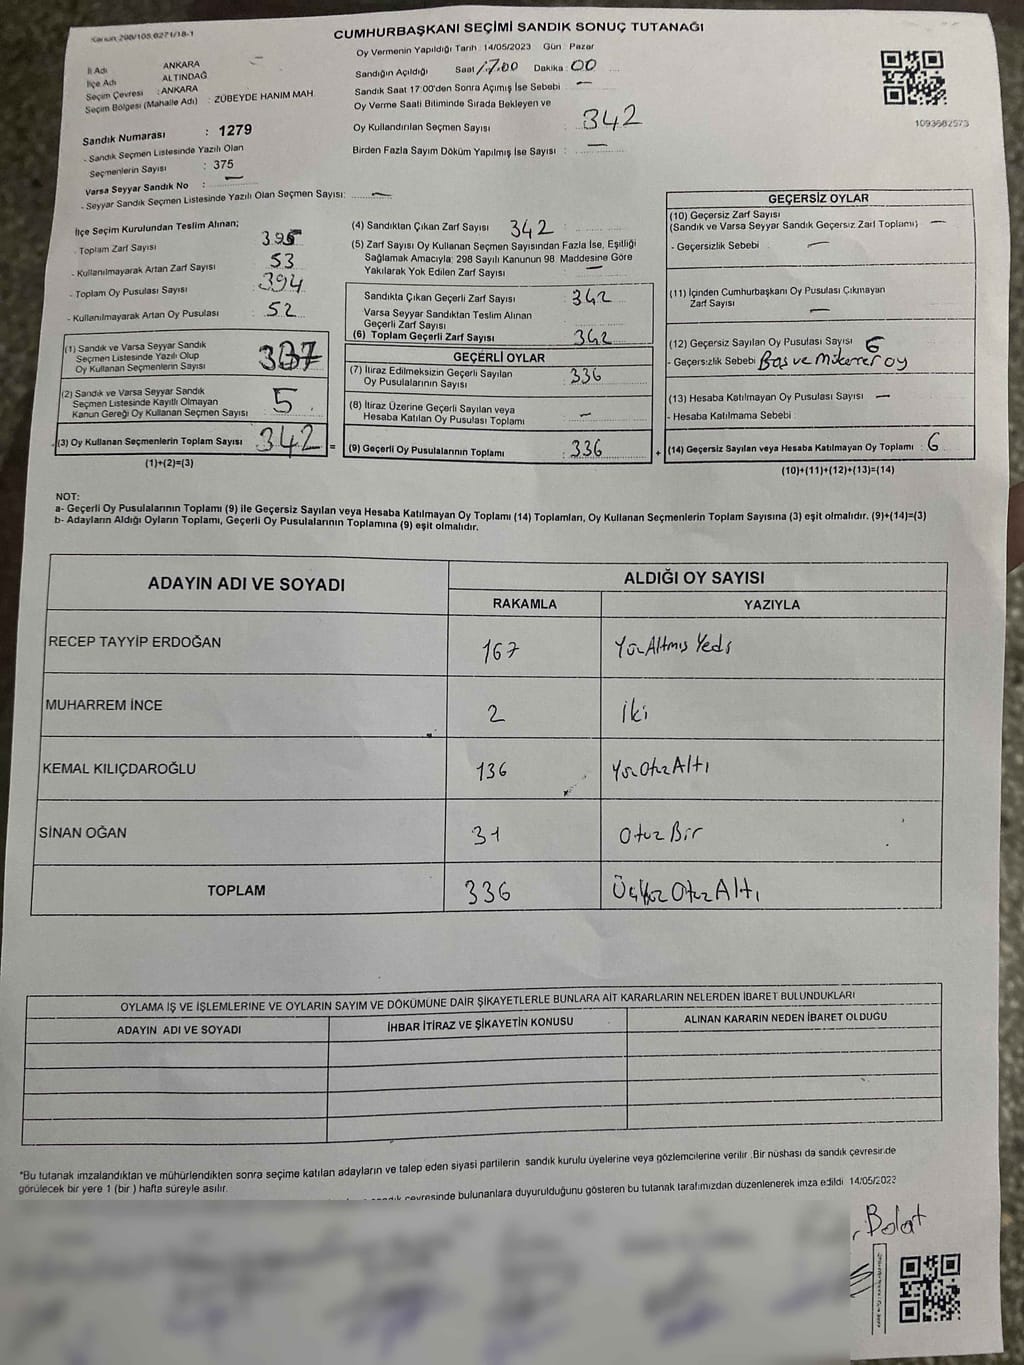 Kanun:298/105,6271/18-1
CUMHURBAŞKANI SEÇİMİ SANDIK SONUÇ TUTANAĞI
Oy Vermenin Yapıldığı Tarih :14/05/2023 Gün : Pazar
İl Adı ANKARA
İlçe Adı ALTINDAĞ
Seçim Çevresi : ANKARA
Seçim Bölgesi (Mahalle Adı) : ZÜBEYDE HANIM MAH.
Sandığın Açıldığı Saat 17:00 Dakika : 00
Sandık Saat 17:00'den Sonra Açımış İse Sebebi —
Oy Verme Saati Bitiminde Sırada Bekleyen ve
Oy Kullandırılan Seçmen Sayısı : 342
Birden Fazla Sayım Döküm Yapılmış İse Sayısı : —
1093682573
Sandık Numarası : 1279
- Sandık Seçmen Listesinde Yazılı Olan
Seçmenlerin Sayısı : 375
Varsa Seyyar Sandık No : —
- Seyyar Sandık Seçmen Listesinde Yazılı Olan Seçmen Sayısı: —
İlçe Seçim Kurulundan Teslim Alınan;
- Toplam Zarf Sayısı 395
- Kullanılmayarak Artan Zarf Sayısı 53
- Toplam Oy Pusulası Sayısı : 394
- Kullanılmayarak Artan Oy Pusulası : 52
(1) Sandık ve Varsa Seyyar Sandık
Seçmen Listesinde Yazılı Olup
Oy Kullanan Seçmenlerin Sayısı 337
(2) Sandık ve Varsa Seyyar Sandık
Seçmen Listesinde Kayıtlı Olmayan
Kanun Gereği Oy Kullanan Seçmen Sayısı : 5
(3) Oy Kullanan Seçmenlerin Toplam Sayısı 342 =
(1)+(2)=(3)
(4) Sandıktan Çıkan Zarf Sayısı 342
(5) Zarf Sayısı Oy Kullanan Seçmen Sayısından Fazla İse, Eşitliği
Sağlamak Amacıyla; 298 Sayılı Kanunun 98. Maddesine Göre
Yakılarak Yok Edilen Zarf Sayısı —
Sandıkta Çıkan Geçerli Zarf Sayısı : 342
Varsa Seyyar Sandıktan Teslim Alınan
Geçerli Zarf Sayısı
(6) Toplam Geçerli Zarf Sayısı 342
GEÇERLİ OYLAR
(7) İtiraz Edilmeksizin Geçerli Sayılan
Oy Pusulalarının Sayısı : 336
(8) İtiraz Üzerine Geçerli Sayılan veya
Hesaba Katılan Oy Pusulası Toplamı : —
(9) Geçerli Oy Pusulalarının Toplamı : 336 +
GEÇERSİZ OYLAR
(10) Geçersiz Zarf Sayısı
(Sandık ve Varsa Seyyar Sandık Geçersiz Zarf Toplamı) —
- Geçersizlik Sebebi : —
(11) İçinden Cumhurbaşkanı Oy Pusulası Çıkmayan
Zarf Sayısı : —
(12) Geçersiz Sayılan Oy Pusulası Sayısı : 6
- Geçersizlik Sebebi : Boş ve Mükerrer oy
(13) Hesaba Katılmayan Oy Pusulası Sayısı —
- Hesaba Katılmama Sebebi :
(14) Geçersiz Sayılan veya Hesaba Katılmayan Oy Toplamı : 6
(10)+(11)+(12)+(13)=(14)
NOT:
a- Geçerli Oy Pusulalarının Toplamı (9) ile Geçersiz Sayılan veya Hesaba Katılmayan Oy Toplamı (14) Toplamları, Oy Kullanan Seçmenlerin Toplam Sayısına (3) eşit olmalıdır. (9)+(14)=(3)
b- Adayların Aldığı Oyların Toplamı, Geçerli Oy Pusulalarının Toplamına (9) eşit olmalıdır.
ADAYIN ADI VE SOYADI ALDIĞI OY SAYISI
RAKAMLA YAZIYLA
RECEP TAYYİP ERDOĞAN 167 Yüz Altmış Yedi
MUHARREM İNCE 2 İki
KEMAL KILIÇDAROĞLU 136 Yüz Otuz Altı
SİNAN OĞAN 31 Otuz Bir
TOPLAM 336 Üç Yüz Otuz Altı
OYLAMA İŞ VE İŞLEMLERİNE VE OYLARIN SAYIM VE DÖKÜMÜNE DAİR ŞİKAYETLERLE BUNLARA AİT KARARLARIN NELERDEN İBARET BULUNDUKLARI
ADAYIN ADI VE SOYADI İHBAR İTİRAZ VE ŞİKAYETİN KONUSU ALINAN KARARIN NEDEN İBARET OLDUĞU
*Bu tutanak imzalandıktan ve mühürlendikten sonra seçime katılan adayların ve talep eden siyasi partilerin sandık kurulu üyelerine veya gözlemcilerine verilir .Bir nüshası da sandık çevresinde
görülecek bir yere 1 (bir ) hafta süreyle asılır.
çevresinde bulunanlara duyurulduğunu gösteren bu tutanak tarafımızdan düzenlenerek imza edildi 14/05/2023
Bolat